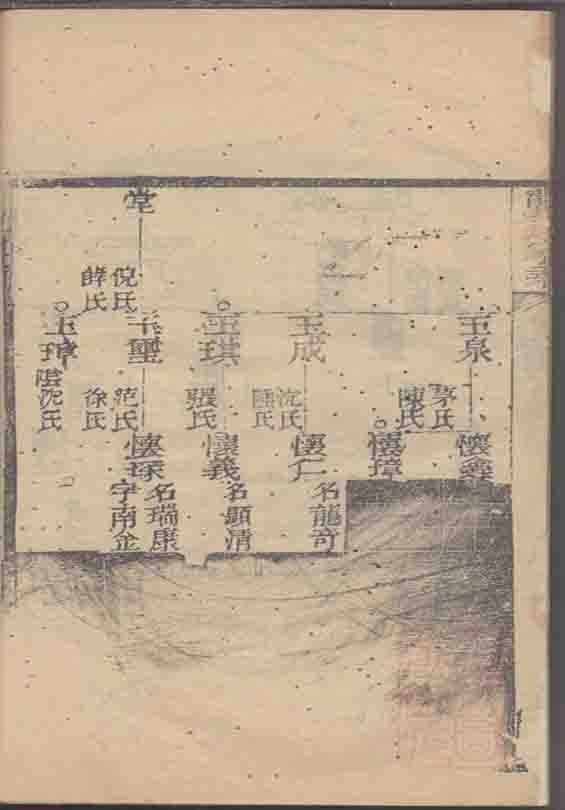 玉泉
茅氏
陳氏
懷
懷璋
玉成
沈氏
懷仁
名龍奇
玉琪
張氏
懷義
名顯清
堂
倪氏
薛氏
玉璽
范氏
徐氏
懷琛
名瑞康
字南金
玉璋
沈氏